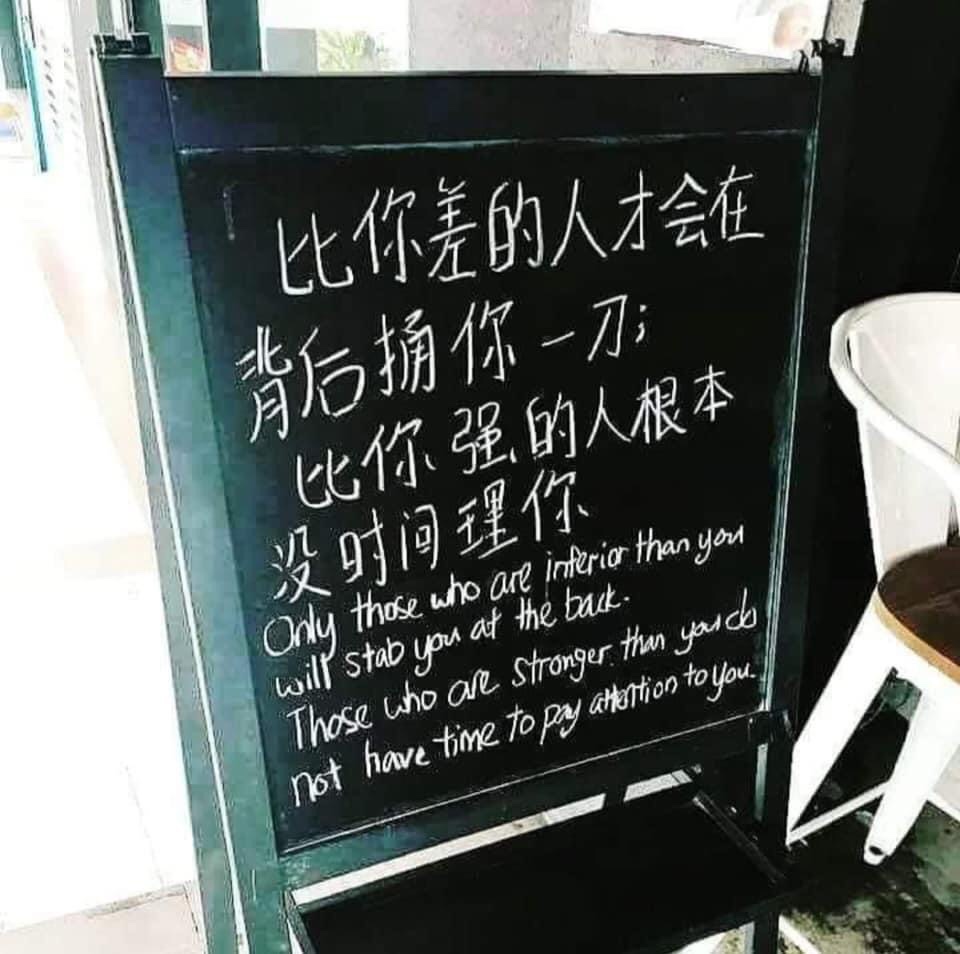 比你差的人才会在
背后捅你一刀;
比你强的人根本
没时间理你
Only those who are inferior than you
will stab you at the back.
Those who are stronger than you do
not have time to pay attention to you.